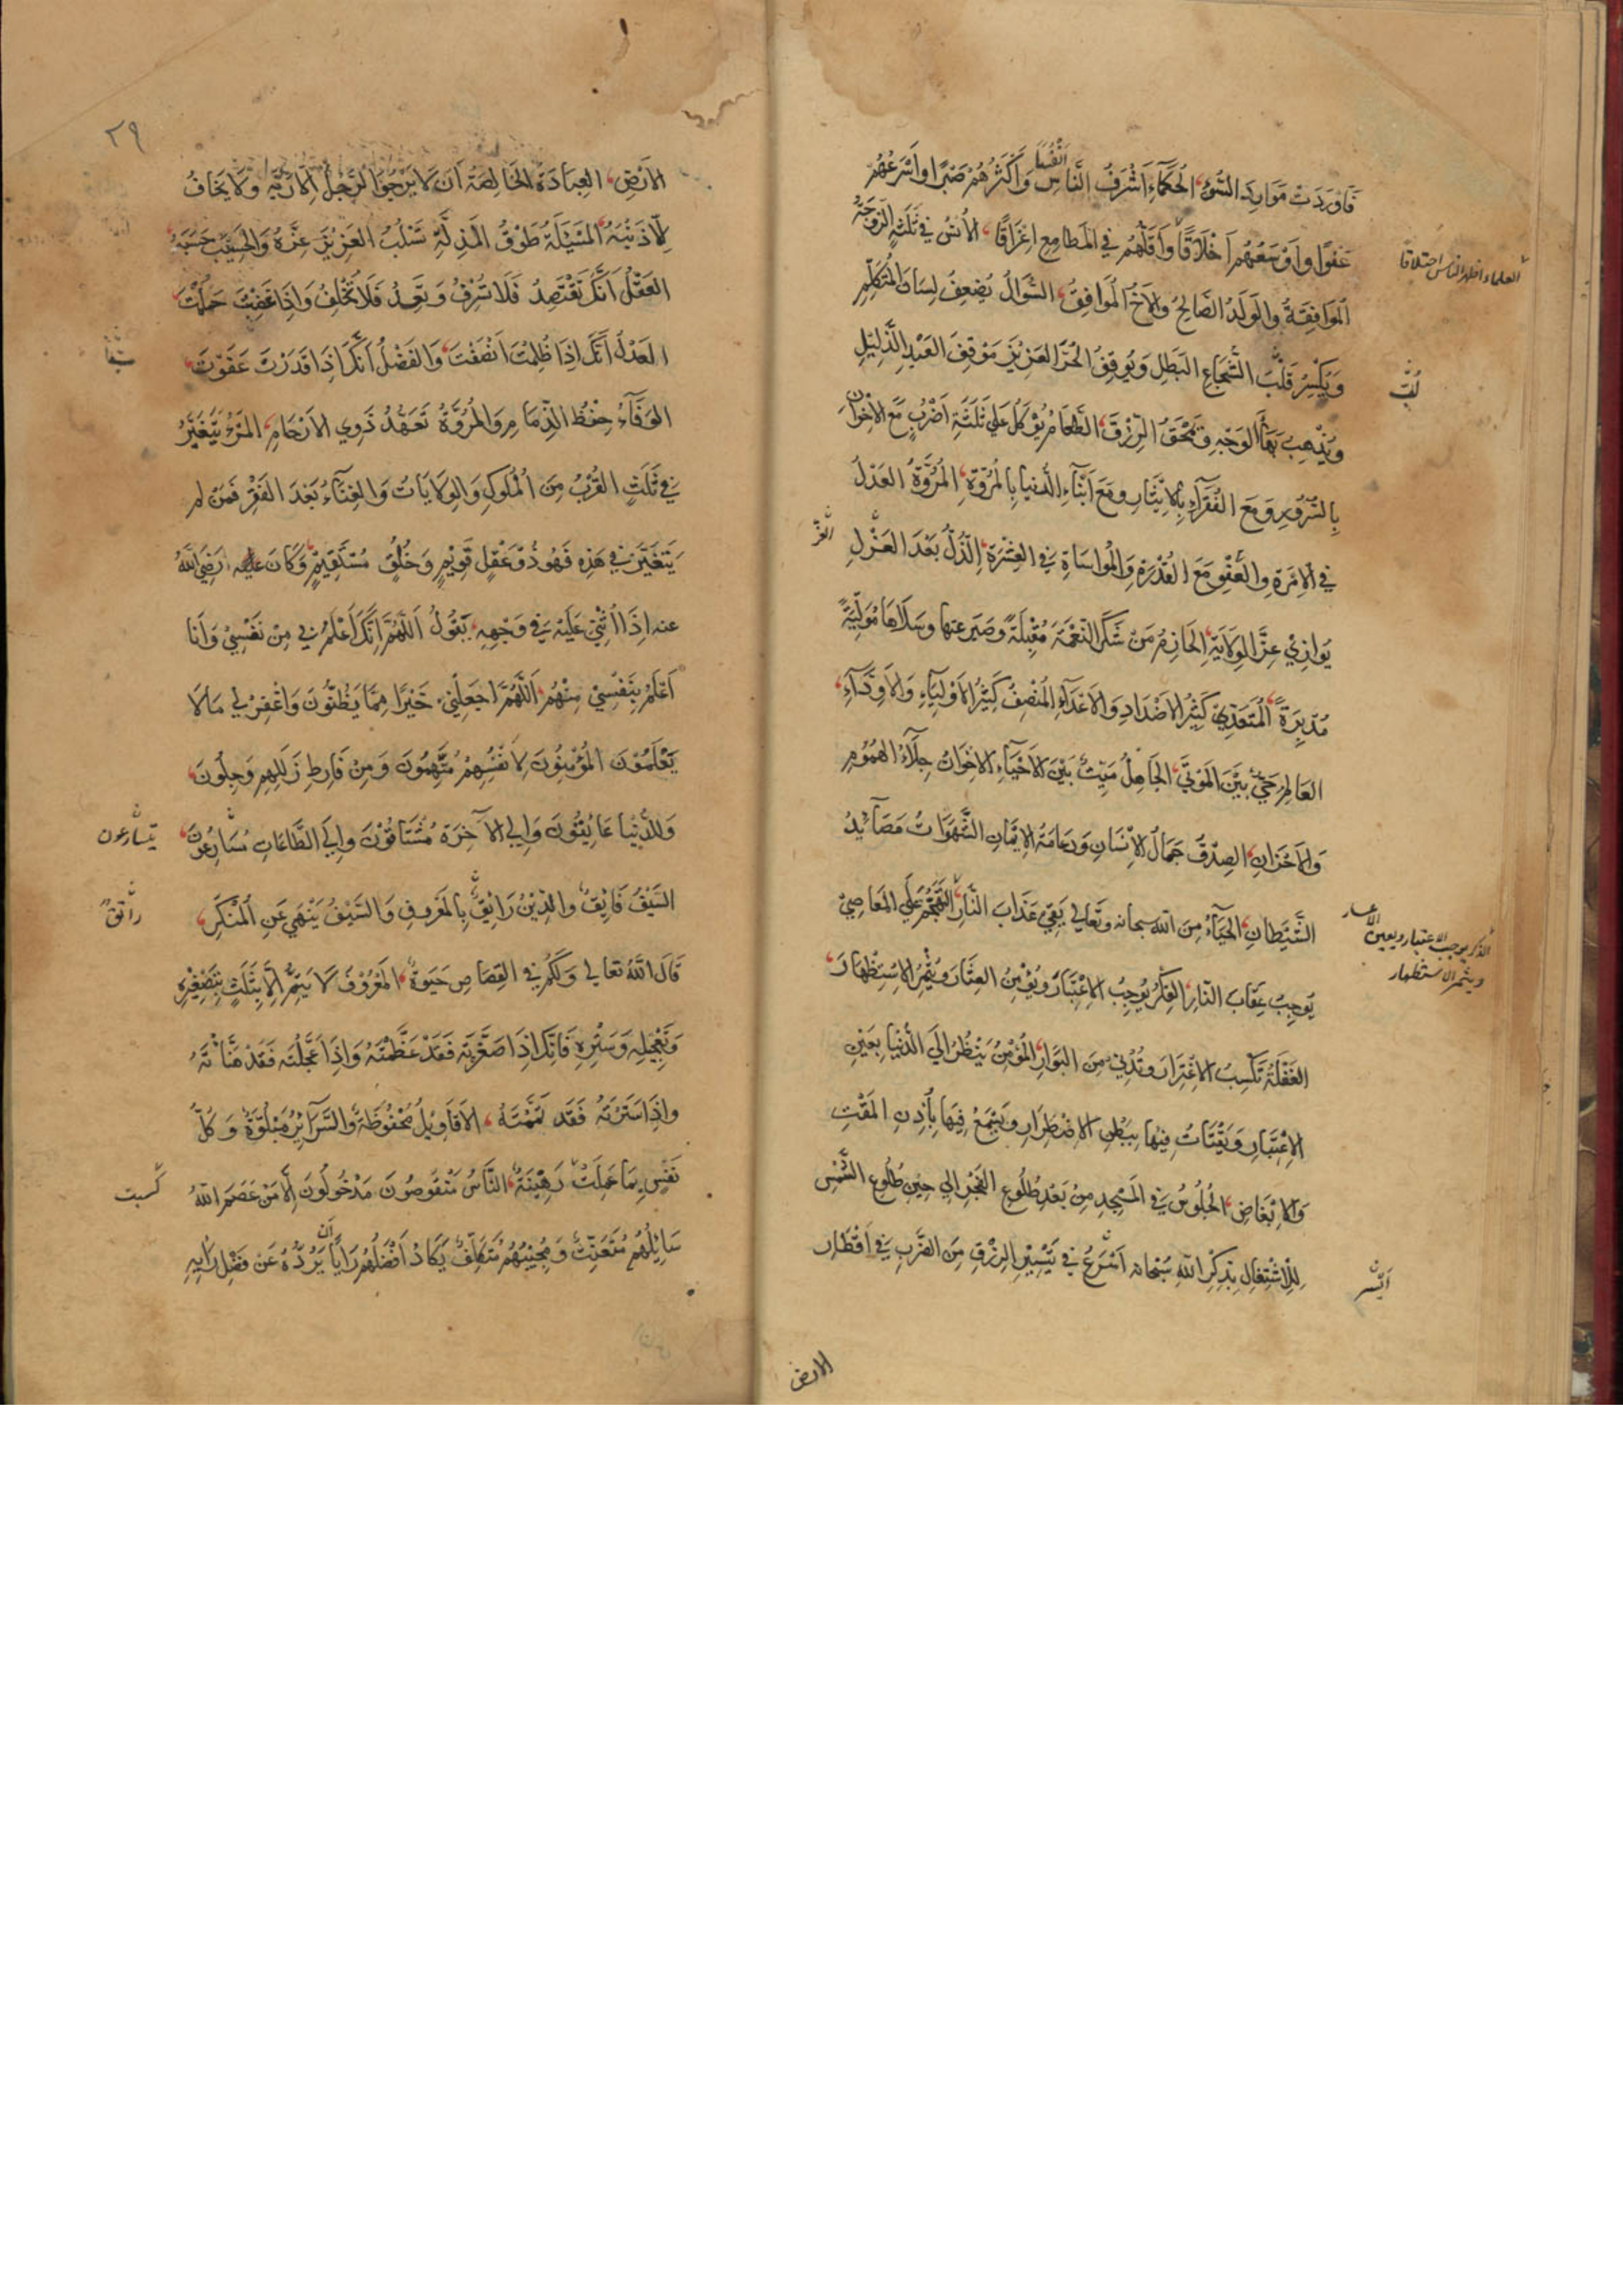 فَاوْرَدَتْ مَوَارِدَ السُّوْءِ، الحُكَمَآءُ اَشْرَفُ النَّاسِ اَنْفُسًا وَاَكْثَرُهُمْ صَبْرًا وَاَسْرَعُهُمْ
عَفْوًا وَاَوْسَعُهُمْ اَخْلَاقًا وَاَقَلُّهُمْ فِي المَطَامِعِ اِغْرَاقًا، الاُنْسُ فِي ثَلَثَةٍ الزَّوْجَةُ
المُوَافِقَةُ وَالوَلَدُ الصَّالِحُ وَالاَخُ المُوَافِقُ، السُّوَالُ يُضْعِفُ لِسَانَ المُتَكَلِّمِ
وَيَكْسِرُ قَلْبَ الشُّجَاعِ البَطَلِ وَيُوقِفُ الحُرَّ العَزِيْزَ مَوْقِفَ العَبْدِ الذَّلِيْلِ
وَيُذْهِبُ بَهَآءَ الوَجْهِ وَيَمْحَقُ الرِّزْقَ، الطَّعَامُ يُؤْكَلُ عَلَي ثَلَثَةِ اَضْرُبٍ مَعَ الاِخْوَانِ
بِالسُّرُورِ وَمَعَ الفُقَرَآءِ بِالاِيْثَارِ وَمَعَ اَبْنَآءِ الدُّنيَا بِالمُرُوَّةِ، المُرُوَّةُ العَدْلُ
فِي الاِمْرَةِ وَالعَفْوُ مَعَ القُدْرَةِ وَالمُوَاسَاةِ فِي العِشْرَةِ، الذُّلُّ بَعْدَ العَزْلِ
يُوَازِيْ عِزَّ الوِلَايَةِ، الحَازِمُ مَنْ شَكَرَ النِّعْمَةَ مُقْبِلَةً وَصَبَرَ عَنهَا وَسَلَاهَا مُوَلِّيَةً
مُدْبِرَةً، المُتَعَدِّيْ كَثِيْرُ الاَضْدَادِ وَالاَعْدَآءِ، المُنْصِفُ كَثِيْرُ الاَوْلِيَآءِ وَالاَوِدَّآءِ،
العَالِمُ حَيٌّ بَيْنَ المَوْتَي، الجَاهِلُ مَيِّتٌ بَيْنَ الاَحْيَآءِ، الاِخْوَانُ جِلَآءُ الهُمُوْمِ
وَالاَحْزَانِ، الصِّدْقُ جَمَالُ الاِنْسَانِ وَدِعَامَةُ الاِيْمَانِ، الشَّهَوَاتُ مَصَآئِدُ
الشَّيْطَانِ، الحَيَآءُ مِنَ اللّٰه سبحانه وتَعَالي يَقِي عَذَابَ النَّارِ، التَّهَجُّمُ عَلَي المَعَاصِيْ
يُوجِبُ عِقَابَ النَّارِ، الفِكْرُ يُوجِبُ الاِعْتِبَارَ وَيُؤْمِنُ العِثَارَ وَيُثْمِرُ الاِسْتِظْهَارَ،
الغَفْلَةُ تَكْسِبُ الاِغْتِرَارَ وَتُدْنِي مِنَ البَوَارِ، المُؤْمِنُ يَنْظُرُ اِلَي الدُّنْيَا بِعَيْنِ
الاِعْتِبَارِ وَيَقْتَاتُ فِيْهَا بِبَطْنِ الاِضْطِرَارِ وَيَسْمَعُ فِيْهَا بِاُذُنِ المَقْتِ
وَالاِبْغَاضِ، الجُلُوْسُ فِي المَسْجِدِ مِنْ بَعْدِ طُلُوعِ الفَجْرِ اِلي حِيْنِ طُلُوعِ الشَّمْسِ
لِلْاِشْتِغَالِ بِذِكْرِ اللّٰهِ سُبْحَانَه اَسْرَعُ فِي تَيْسِيْرِ الرِّزْقِ مِنَ الضَّرْبِ فِي اَقْطَارِ
العلماء اطهر الناس اخلاقا
لُبَّ
العزّ
الذكر يوجب الاعتبار ويعين
ويثمر الاستظهار
اَيْسَر
الارض
٢٩
الاَرْضِ، العِبَادَةُ الخَالِصَةُ اَنْ لَا يَرْجُوَ الرَّجُلُ اِلَّا رَبَّه وَلَا يَخَافُ
اِلَّا ذَنْبَهُ، المَسْئَلَةُ طَوْقُ المَذِلَّةِ تَسْلُبُ العَزِيْزَ عِزَّهُ وَالحَسِيْبَ حَسَبَهُ،
العَقْلُ اَنَّكَ تَقْتَصِدُ فَلَا تُسْرِفُ وَتَعِدُ فَلَا تُخْلِفُ وَاِذَا غَضِبْتَ حَلُمْتَ،
العَدْلُ اَنَّكَ اِذَا ظُلِمْتَ اَنْصَفْتَ، وَالفَضْلُ اَنَّكَ اِذَا قَدَرْتَ عَفَوْتَ،
الوَفَآءُ حِفْظُ الذِّمَامِ وَالمُرُوَّةُ تَعَهُّدُ ذَوِي الاَرْحَامِ، المَرْءُ يَتَغَيَّرُ
فِي ثَلَثٍ القُرْبُ مِنَ المُلُوكِ وَالوِلَايَاتُ وَالغِنَآءُ بَعْدَ الفَقْرِ فَمَنْ لم
يَتَغَيَّرْ فِي هَذِه فَهُوَ ذُوْ عَقْلٍ قَوِيْمٍ وَخُلُقٍ مُسْتَقِيْمٍ، وَكَانَ عليه رَضِيَ اللّٰهُ
عنه اِذَا اُثْنِيَ عَلَيْهِ فِي وَجْهِهِ، يَقُولُ اَللّٰهُمَّ اِنَّكَ اَعْلَمُ بِي مِنْ نَفْسِيْ وَاَنَا
اَعْلَمُ بِنَفْسِيْ مِنْهُم، اَللّٰهُمَّ اجْعَلْنِيْ خَيْرًا مِمَّا يَظُنُّونَ وَاغْفِرْ لِي مَا لَا
يَعْلَمُوْنَ، المُؤْمِنُوْنَ لِاَنْفُسِهِمْ مُتَّهِمُونَ وَمِنْ فَارِطِ زَلَلِهِم وَجِلُونَ،
وَلِلدُّنْيَا عَائِفُونَ وَاِلي الآخِرَةِ مُشْتَاقُوْنَ وَاِلَي الطَّاعَاتِ مُسَارِعُونَ،
السَّيْفُ فَاتِقٌ وَالدِّيْنُ رَاتِقٌ، بِالمَعْرُوفِ وَالسَّيْفُ يَنْهَي عَنِ المُنْكَرِ،
قَالَ اللّٰهُ تعالي وَلَكُمْ فِي القِصَاصِ حَيَوةٌ، المَعْرُوْفُ لَا يَتِمُّ اِلَّا بِثَلَثٍ بِتَصْغِيْرِهِ
وَتَعْجِيْلِهِ وَسَتْرِهِ فَاِنَّكَ اِذَا صَغَّرْتَه فَقَدْ عَظَّمْتَهُ وَاِذَا عَجَّلْتَه فَقَدْ هَنَّاْتَهُ
وَاِذَا سَتَرْتَهُ فَقَد تَمَّمْتَهُ، الاَقَاوِيْلُ مَحْفُوْظَةٌ وَالسَّرَآئِرُ مَبْلُوَّةٌ وَكُلُّ
نَفْسٍ بِمَا عَمِلَتْ رَهِيْنَةٌ، النَّاسُ مَنْقُوصُوْنَ مَدْخُولُوْنَ اِلَّا مَنْ عَصَمَ اللّٰهُ
سَايِلُهُم مُتَعَنِّتٌ وَمُجِيْبُهُمْ مُتَكَلِّفٌ يَكَادُ اَفْضَلُهُمْ رَايًا اَنْ يَرُدَّهُ عَنْ فَضْلِ رَايِهِ
يتسارعون
راتقٌ
كسبت